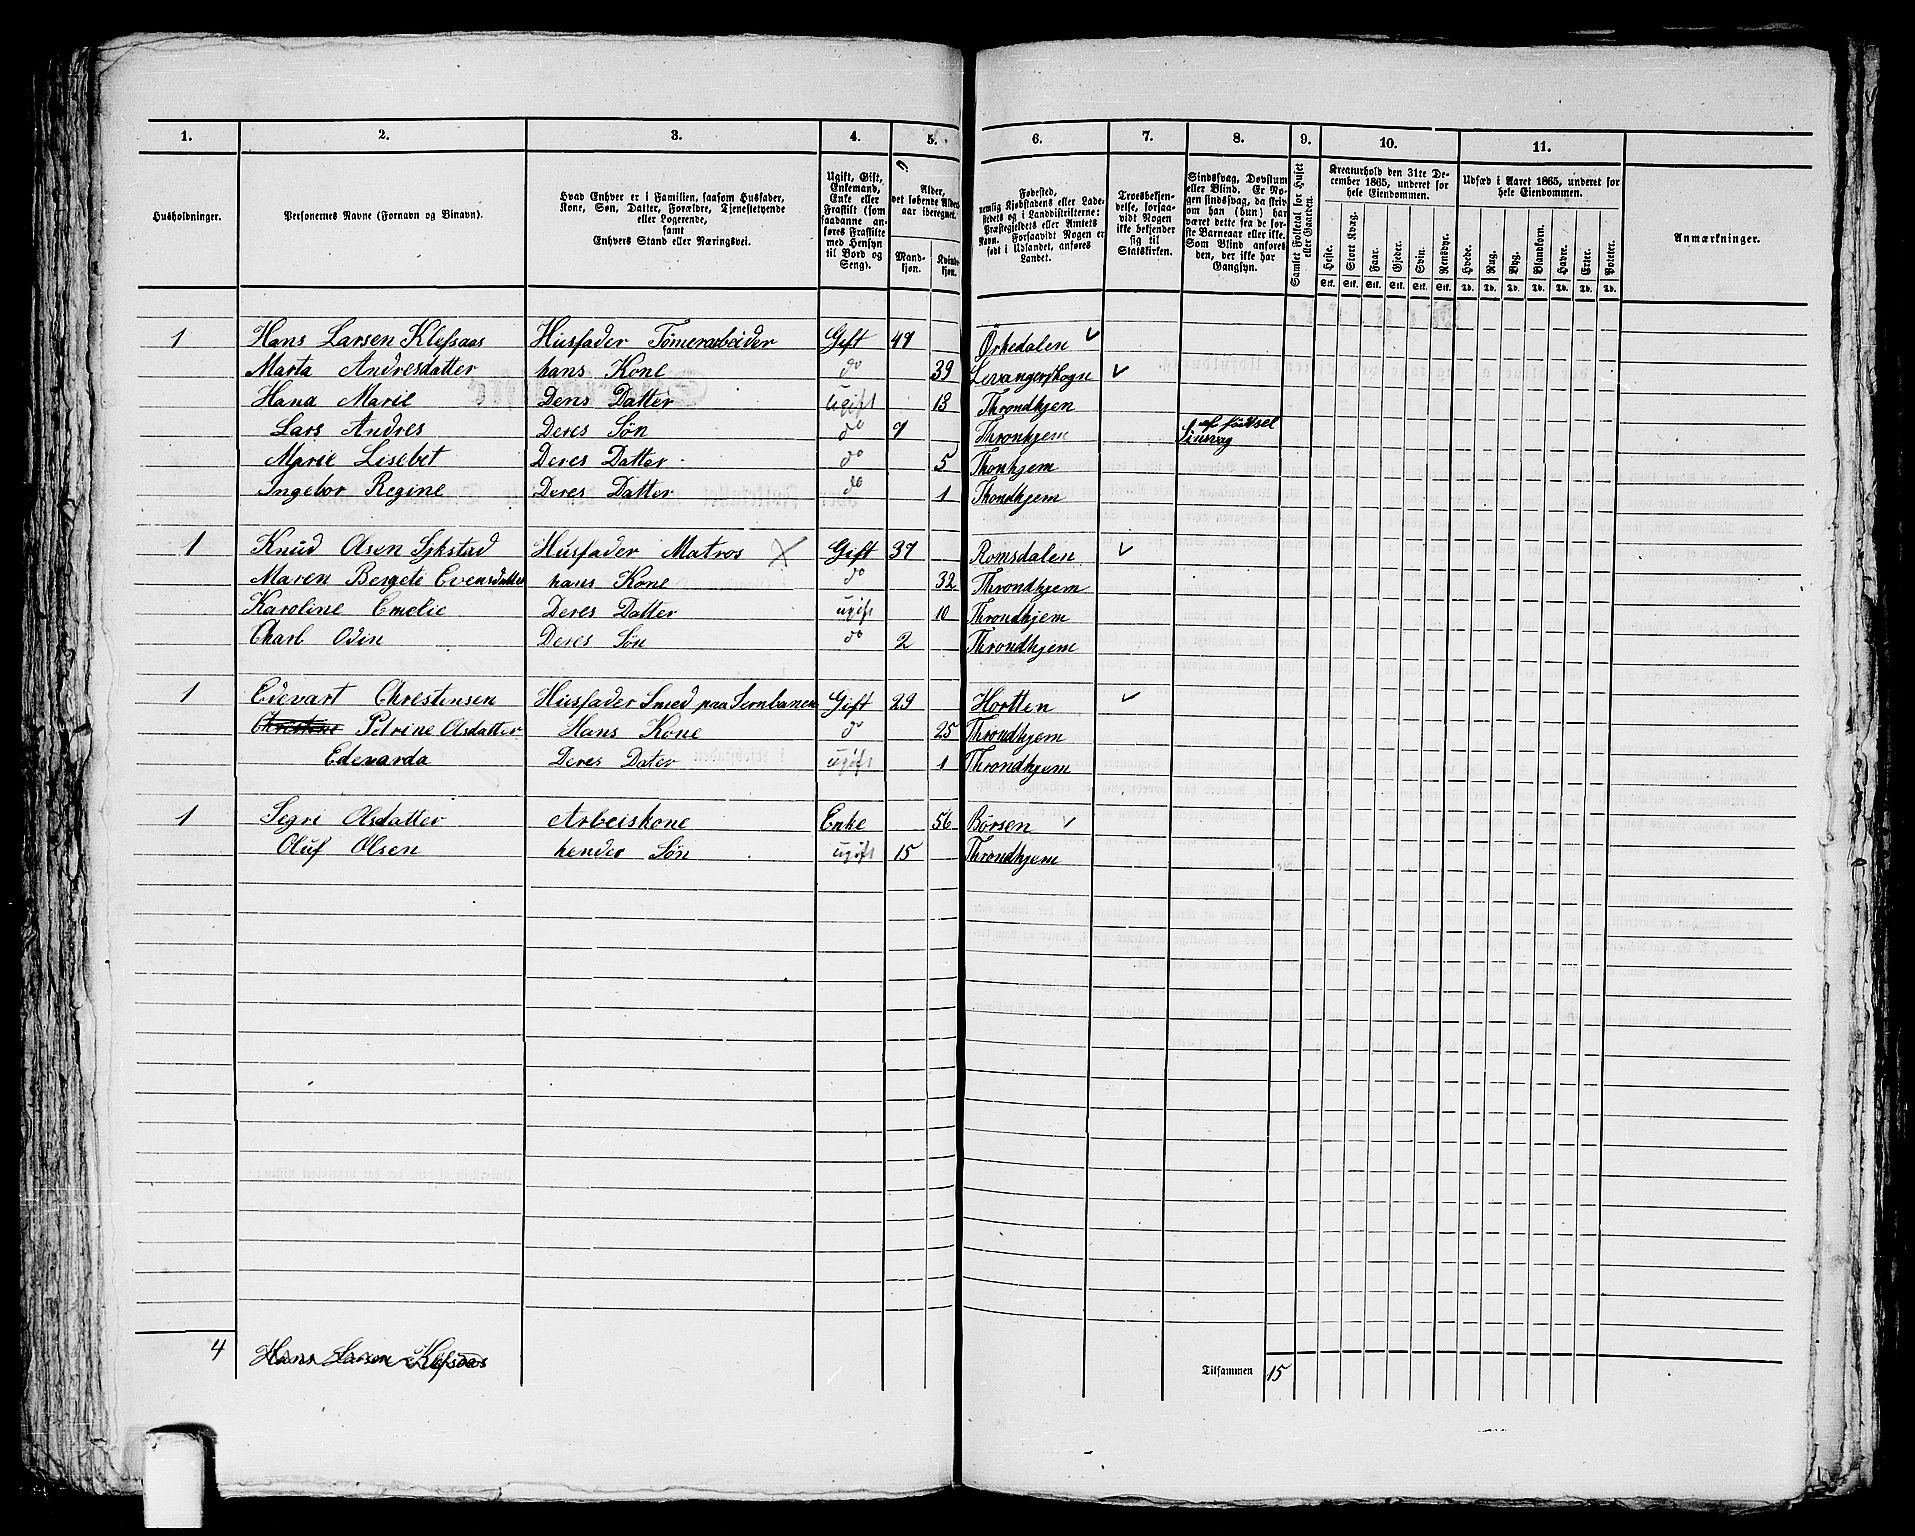 1. 2. 3. 4. 5. 6. 7. 8. 9. 10. 11.
Husholdninger.
Personernes Navne (Fornavn og Binavn).
Hvad Enhver er i Familien, saasom Husfader,
Kone, Søn, Datter, Forældre, Tjenestetyende
eller Logerende,
samt
Enhvers Stand eller Næringsvei.
Ugift, Gift,
Enkemand,
Enke eller
Fraskilt (som
saadanne an-
føres Fraskilte
med Hensyn
til Bord og
Seng).
Alder,
det løbende Alders-
aar iberegnet.
Mand-
kjøn.
Kvind-
kjøn.
Fødested,
nemlig Kjøbstadens eller Lade-
stedets og i Landdistrikterne:
Præstegjeldets eller Amtets
Navn. Forsaavidt Nogen er
født i Udlandet, anføres
Landet.
Troesbekjen-
delse, forsaa-
vidt Nogen
ikke bekjender
sig til
Statskirken.
Sindssvag, Døvstum
eller Blind. Er No-
gen sindssvag, da skriv
om han (hun) har
været dette fra de før-
ste Barneaar eller ikke.
Som Blind anføres
den, der ikke har
Gangsyn.
Samlet Folketal for Huset
eller Gaarden.
Kreaturhold den 31te De-
cember 1865, underet for
hele Eiendommen.
Heste. Stort Kvæg. Faar. Gjeder. Svin. Rensdyr.
Stk. Stk. Stk. Stk. Stk. Stk.
Udsæd i Aaret 1865, underet for
hele Eiendommen.
Hvede. Rug. Byg. Blandkorn. Havre. Erter. Poteter.
Td. Td. Td. Td. Td. Td. Td.
Anmærkninger.
1 Hans Larsen Klefsaas Husfader Tømerarbeider Gift 47 Örkedalen ✓
Marta Andresdatter hans Kone do 39 Levangerskogn ✓
Hana Marie Deres Datter ugift 13 Throndhjen
Lars Andres Deres Søn do 7 Thronhjem Sinsvag af födtsel
Marie Lisebet Deres Datter do 5 Thonhjem
Ingebor Regine Deres Datter do 1 Thondhjem
1 Knud Olsen Sykstad Husfader Matros X Gift 37 Romsdalen ✓
Maren Bergete Evensdatter hans Kone do 32 Throndhjem
Karoline Emelie Deres Datter ugift 10 Throndhjem
Charl Odin Deres Søn do 2 Throndhjem
1 Edevart Chrestensen Husfader Smed paa Jernbanen Gift 29 Hortten ✓
Chrestine Petrine Olsdatter Hans Kone do 25 Throndhjem
Edevarda Deres Dater ugift 1 Throndhjem
1 Segri Olsdatter Arbeiskone Enke 56 Börsen ✓
Oluf Olsen hender Søn ugift 15 Throndhjem
4 Hans Larsen Klefsaas
Tilsammen 15